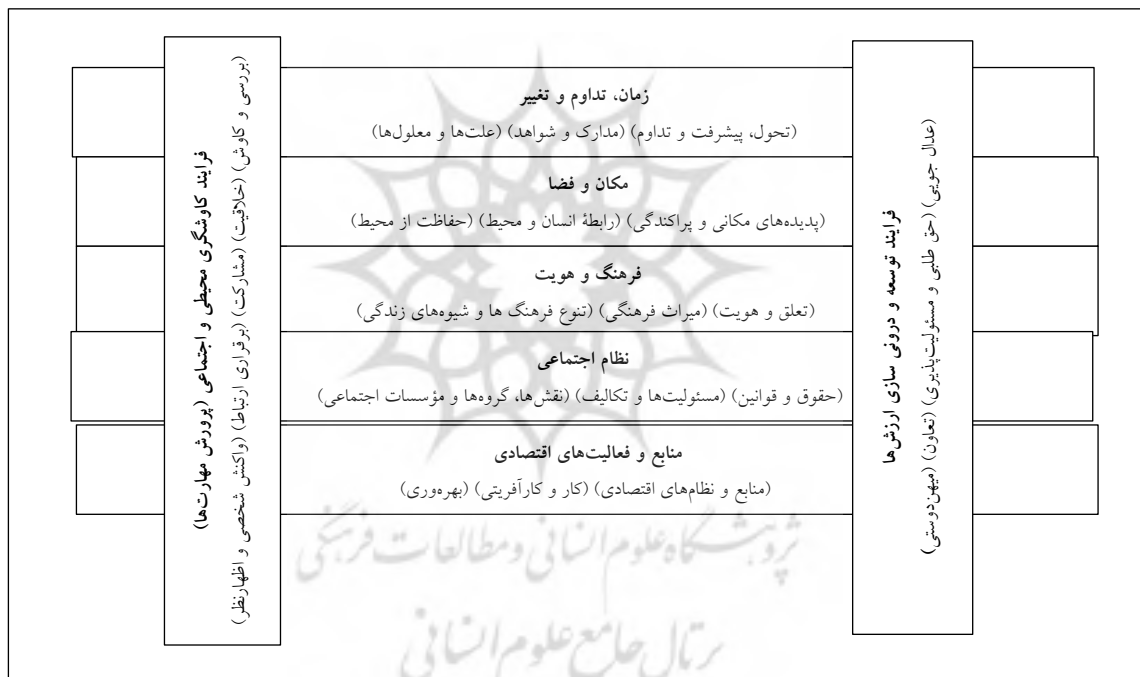 فرایند توسعه و درونی سازی ارزش‌ها
(عدال جویی) (حق طلبی و مسئولیت‌پذیری) (تعاون) (میهن‌دوستی)
زمان، تداوم و تغییر
(تحول، پیشرفت و تداوم) (مدارک و شواهد) (علت‌ها و معلول‌ها)
مکان و فضا
(پدیده‌های مکانی و پراکندگی) (رابطۀ انسان و محیط) (حفاظت از محیط)
فرهنگ و هویت
(تعلق و هویت) (میراث فرهنگی) (تنوع فرهنگ ها و شیوه‌های زندگی)
نظام اجتماعی
(حقوق و قوانین) (مسئولیت‌ها و تکالیف) (نقش‌ها، گروه‌ها و مؤسسات اجتماعی)
منابع و فعالیت‌های اقتصادی
(منابع و نظام‌های اقتصادی) (کار و کارآفریتی) (بهره‌وری)
(بررسی و کاوش) (خلاقیت) (مشارکت) (برقراری ارتباط) (واکنش شخصی و اظهارنظر)
فرایند کاوشگری محیطی و اجتماعی (پرورش مهارت‌ها)
پژوهشگاه علوم انسانی و مطالعات فرهنگی
پرتال جامع علوم انسانی